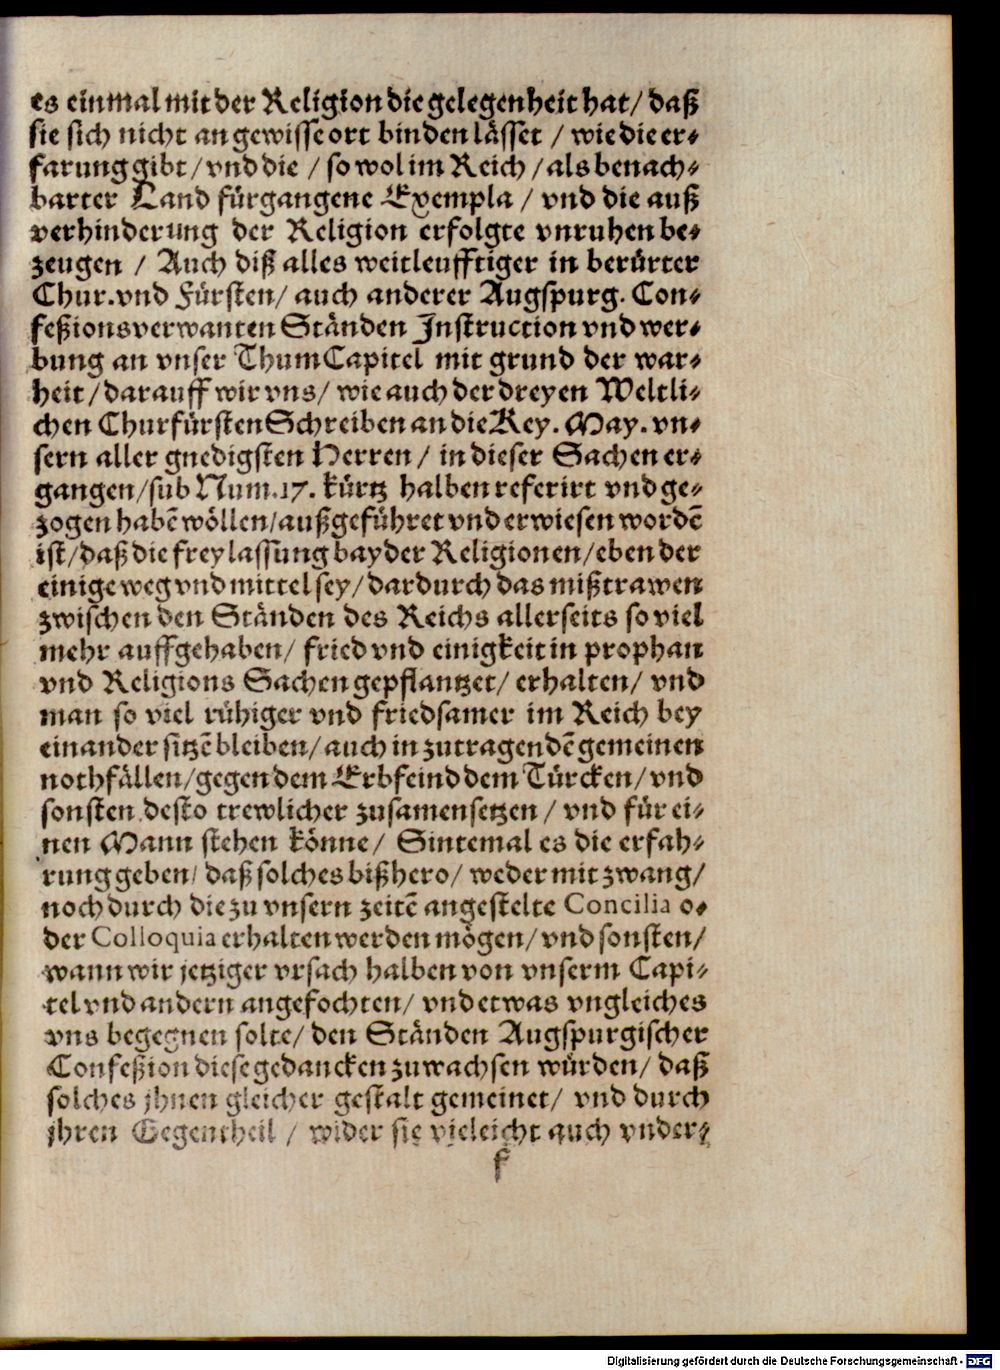 es einmal mit der Religion die gelegenheit hat/ daß
sie sich nicht an gewisse ort binden lässet / wie die er⸗
farung gibt/ vnd die / so wol im Reich / als benach⸗
barter Land fürgangene Exempla / vnd die auß
verhinderung der Religion erfolgte vnruhen be⸗
zeugen / Auch diß alles weitleufftiger in berürter
Chur. vnd Fürsten/ auch anderer Augspurg. Con⸗
feßionsverwanten Ständen Instruction vnd wer⸗
bung an vnser ThumCapitel mit grund der war⸗
heit/ darauff wir vns/ wie auch der dreyen Weltli⸗
chen Churfürsten Schreiben an die Key. May. vn⸗
sern aller gnedigsten Herren / in dieser Sachen er⸗
gangen/ sub Num. 17. kürtz halben referirt vnd ge⸗
zogen habē wöllen/ außgeführet vnd erwiesen wordē
ist/ daß die freylassung bayder Religionen/ eben der
einige weg vnd mittel sey/ dardurch das mißtrawen
zwischen den Ständen des Reichs allerseits so viel
mehr auffgehaben/ fried vnd einigkeit in prophan
vnd Religions Sachen gepflantzet/ erhalten/ vnd
man so viel rühiger vnd friedsamer im Reich bey
einander sitzē bleiben/ auch in zutragendē gemeinen
nothfällen/ gegen dem Erbfeind dem Türcken/ vnd
sonsten desto trewlicher zusamensetzen / vnd für ei⸗
nen Mann stehen könne/ Sintemal es die erfah⸗
rung geben/ daß solches bißhero/ weder mit zwang/
noch durch die zu vnsern zeitē angestelte Concilia o⸗
der Colloquia erhalten werden mögen/ vnd sonsten/
wann wir jetziger vrsach halben von vnserm Capi⸗
tel vnd andern angefochten/ vnd etwas vngleiches
vns begegnen solte/ den Ständen Augspurgischer
Confeßion diese gedancken zuwachsen würden/ daß
solches jhnen gleicher gestalt gemeinet/ vnd durch
jhren Gegentheil / wider sie vieleicht auch vnder⸗
f
Digitalisierung gefördert durch die Deutsche Forschungsgemeinschaft - DFG